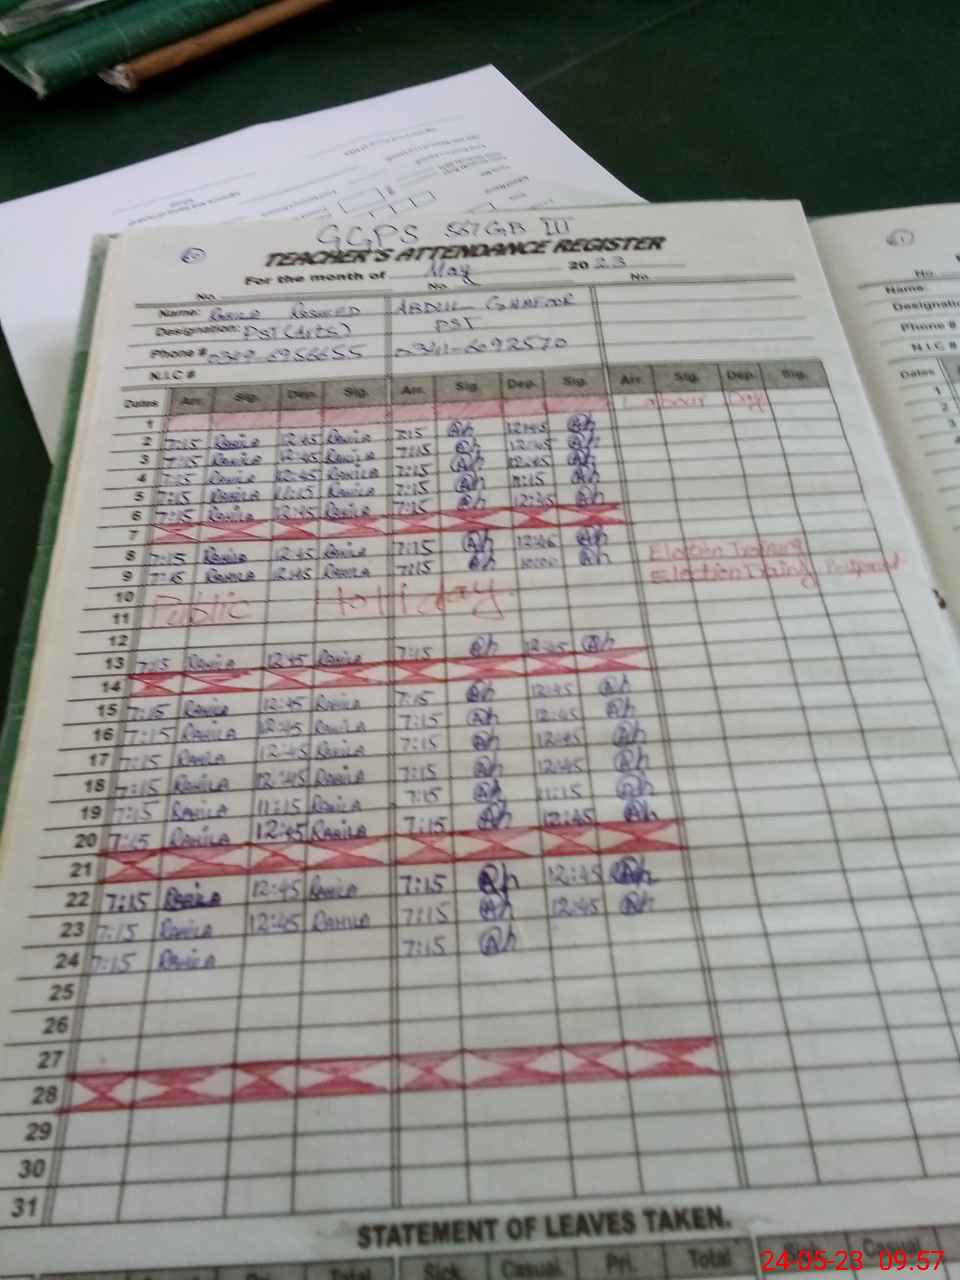 GGPS 567 GB III
TEACHER'S ATTENDANCE REGISTER
For the month of May 2023
No. No. No.
Name: Rahila Rasheed ABDUL GHAFOOR
Designation: PST (Arts) PST
Phone # 0349-6956655 0341-6092570
N.I.C #
Dates Arr. Sig. Dep. Sig. Arr. Sig. Dep. Sig. Arr. Sig. Dep. Sig.
1 Labour Day
2 7:15 Rahila 12:45 Rahila 7:15 Ah 12:45 Ah
3 7:15 Rahila 12:45 Rahila 7:15 Ah 12:45 Ah
4 7:15 Rahila 12:45 Rahila 7:15 Ah 12:45 Ah
5 7:15 Rahila 11:15 Rahila 7:15 Ah 11:15 Ah
6 7:15 Rahila 12:45 Rahila 7:15 Ah 12:45 Ah
7
8 7:15 Rahila 12:45 Rahila 7:15 Ah 12:45 Ah Election Training
9 7:15 Rahila 12:45 Rahila 7:15 Ah 10:00 Ah Election
10 Public Holiday
11
12
13 7:15 Rahila 12:45 Rahila 7:15 Ah 12:45 Ah
14
15 7:15 Rahila 12:45 Rahila 7:15 Ah 12:45 Ah
16 7:15 Rahila 12:45 Rahila 7:15 Ah 12:45 Ah
17 7:15 Rahila 12:45 Rahila 7:15 Ah 12:45 Ah
18 7:15 Rahila 12:45 Rahila 7:15 Ah 12:45 Ah
19 7:15 Rahila 11:15 Rahila 7:15 Ah 11:15 Ah
20 7:15 Rahila 12:45 Rahila 7:15 Ah 12:45 Ah
21
22 7:15 Rahila 12:45 Rahila 7:15 Ah 12:45 Ah
23 7:15 Rahila 12:45 Rahila 7:15 Ah 12:45 Ah
24 7:15 Rahila 7:15 Ah
25
26
27
28
29
30
31
STATEMENT OF LEAVES TAKEN.
Pri. Total Sick Casual Pri. Total Sick Casual
No.
Name:
Designatio
Phone #
N.I.C #
Dates
1
2
3
4
24-05-23 09:57